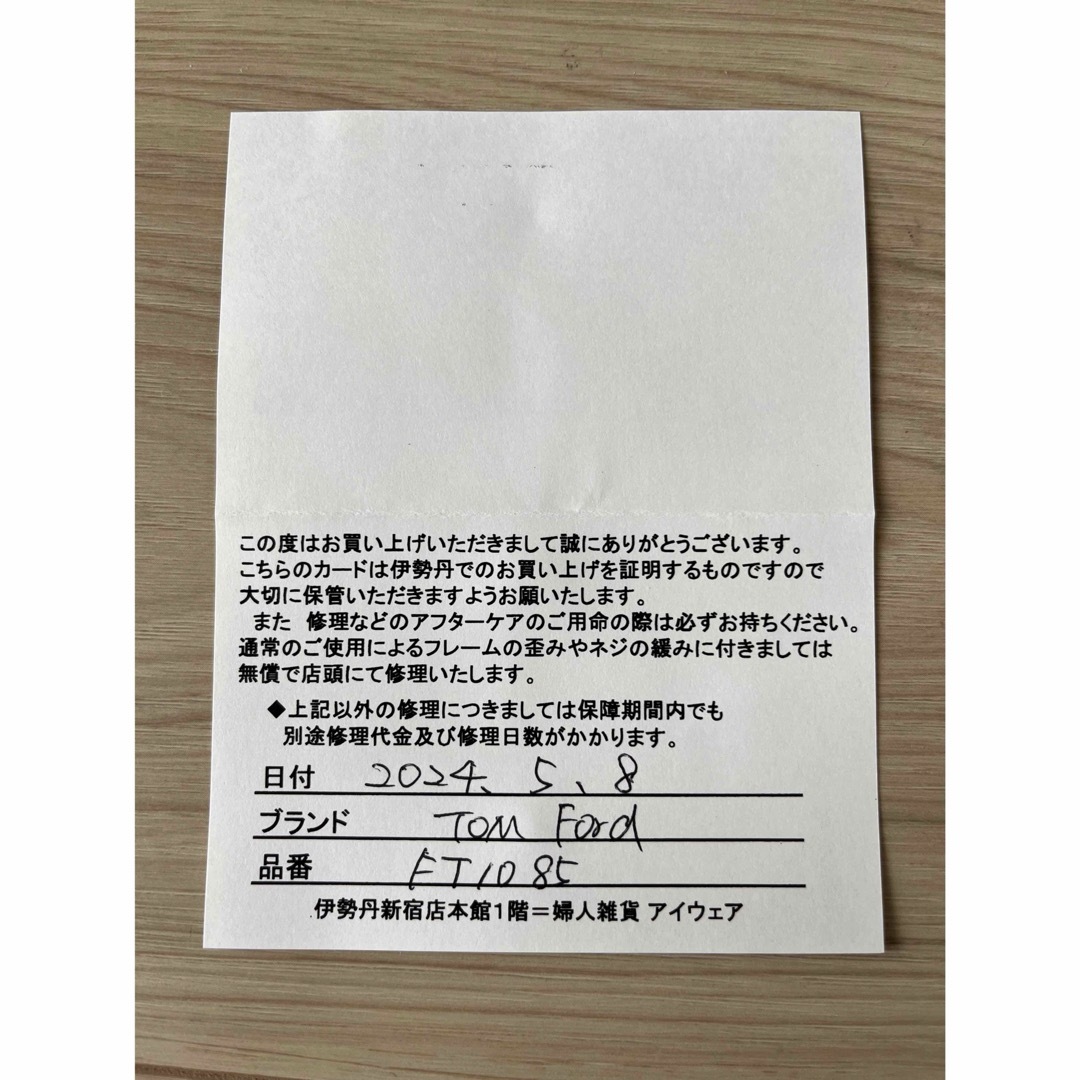 この度はお買い上げいただきまして誠にありがとうございます。
こちらのカードは伊勢丹でのお買い上げを証明するものですので
大切に保管いただきますようお願いいたします。
また 修理などのアフターケアのご用命の際は必ずお持ちください。
通常のご使用によるフレームの歪みやネジの緩みに付きましては
無償で店頭にて修理いたします。
◆上記以外の修理につきましては保障期間内でも
別途修理代金及び修理日数がかかります。
日付 2024、5、8
ブランド TOM Ford
品番 FT1085
伊勢丹新宿店本館1階＝婦人雑貨 アイウェア